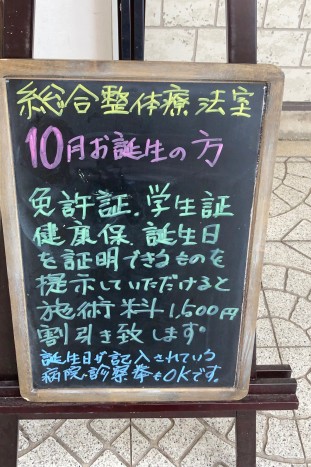 総合整体療法室
10月お誕生の方
免許証.学生証
健康保.誕生日
を証明できるものを
提示していただけると
施術料1,500円
割引き致します。
誕生日が記入されている
病院.診察券もOKです。